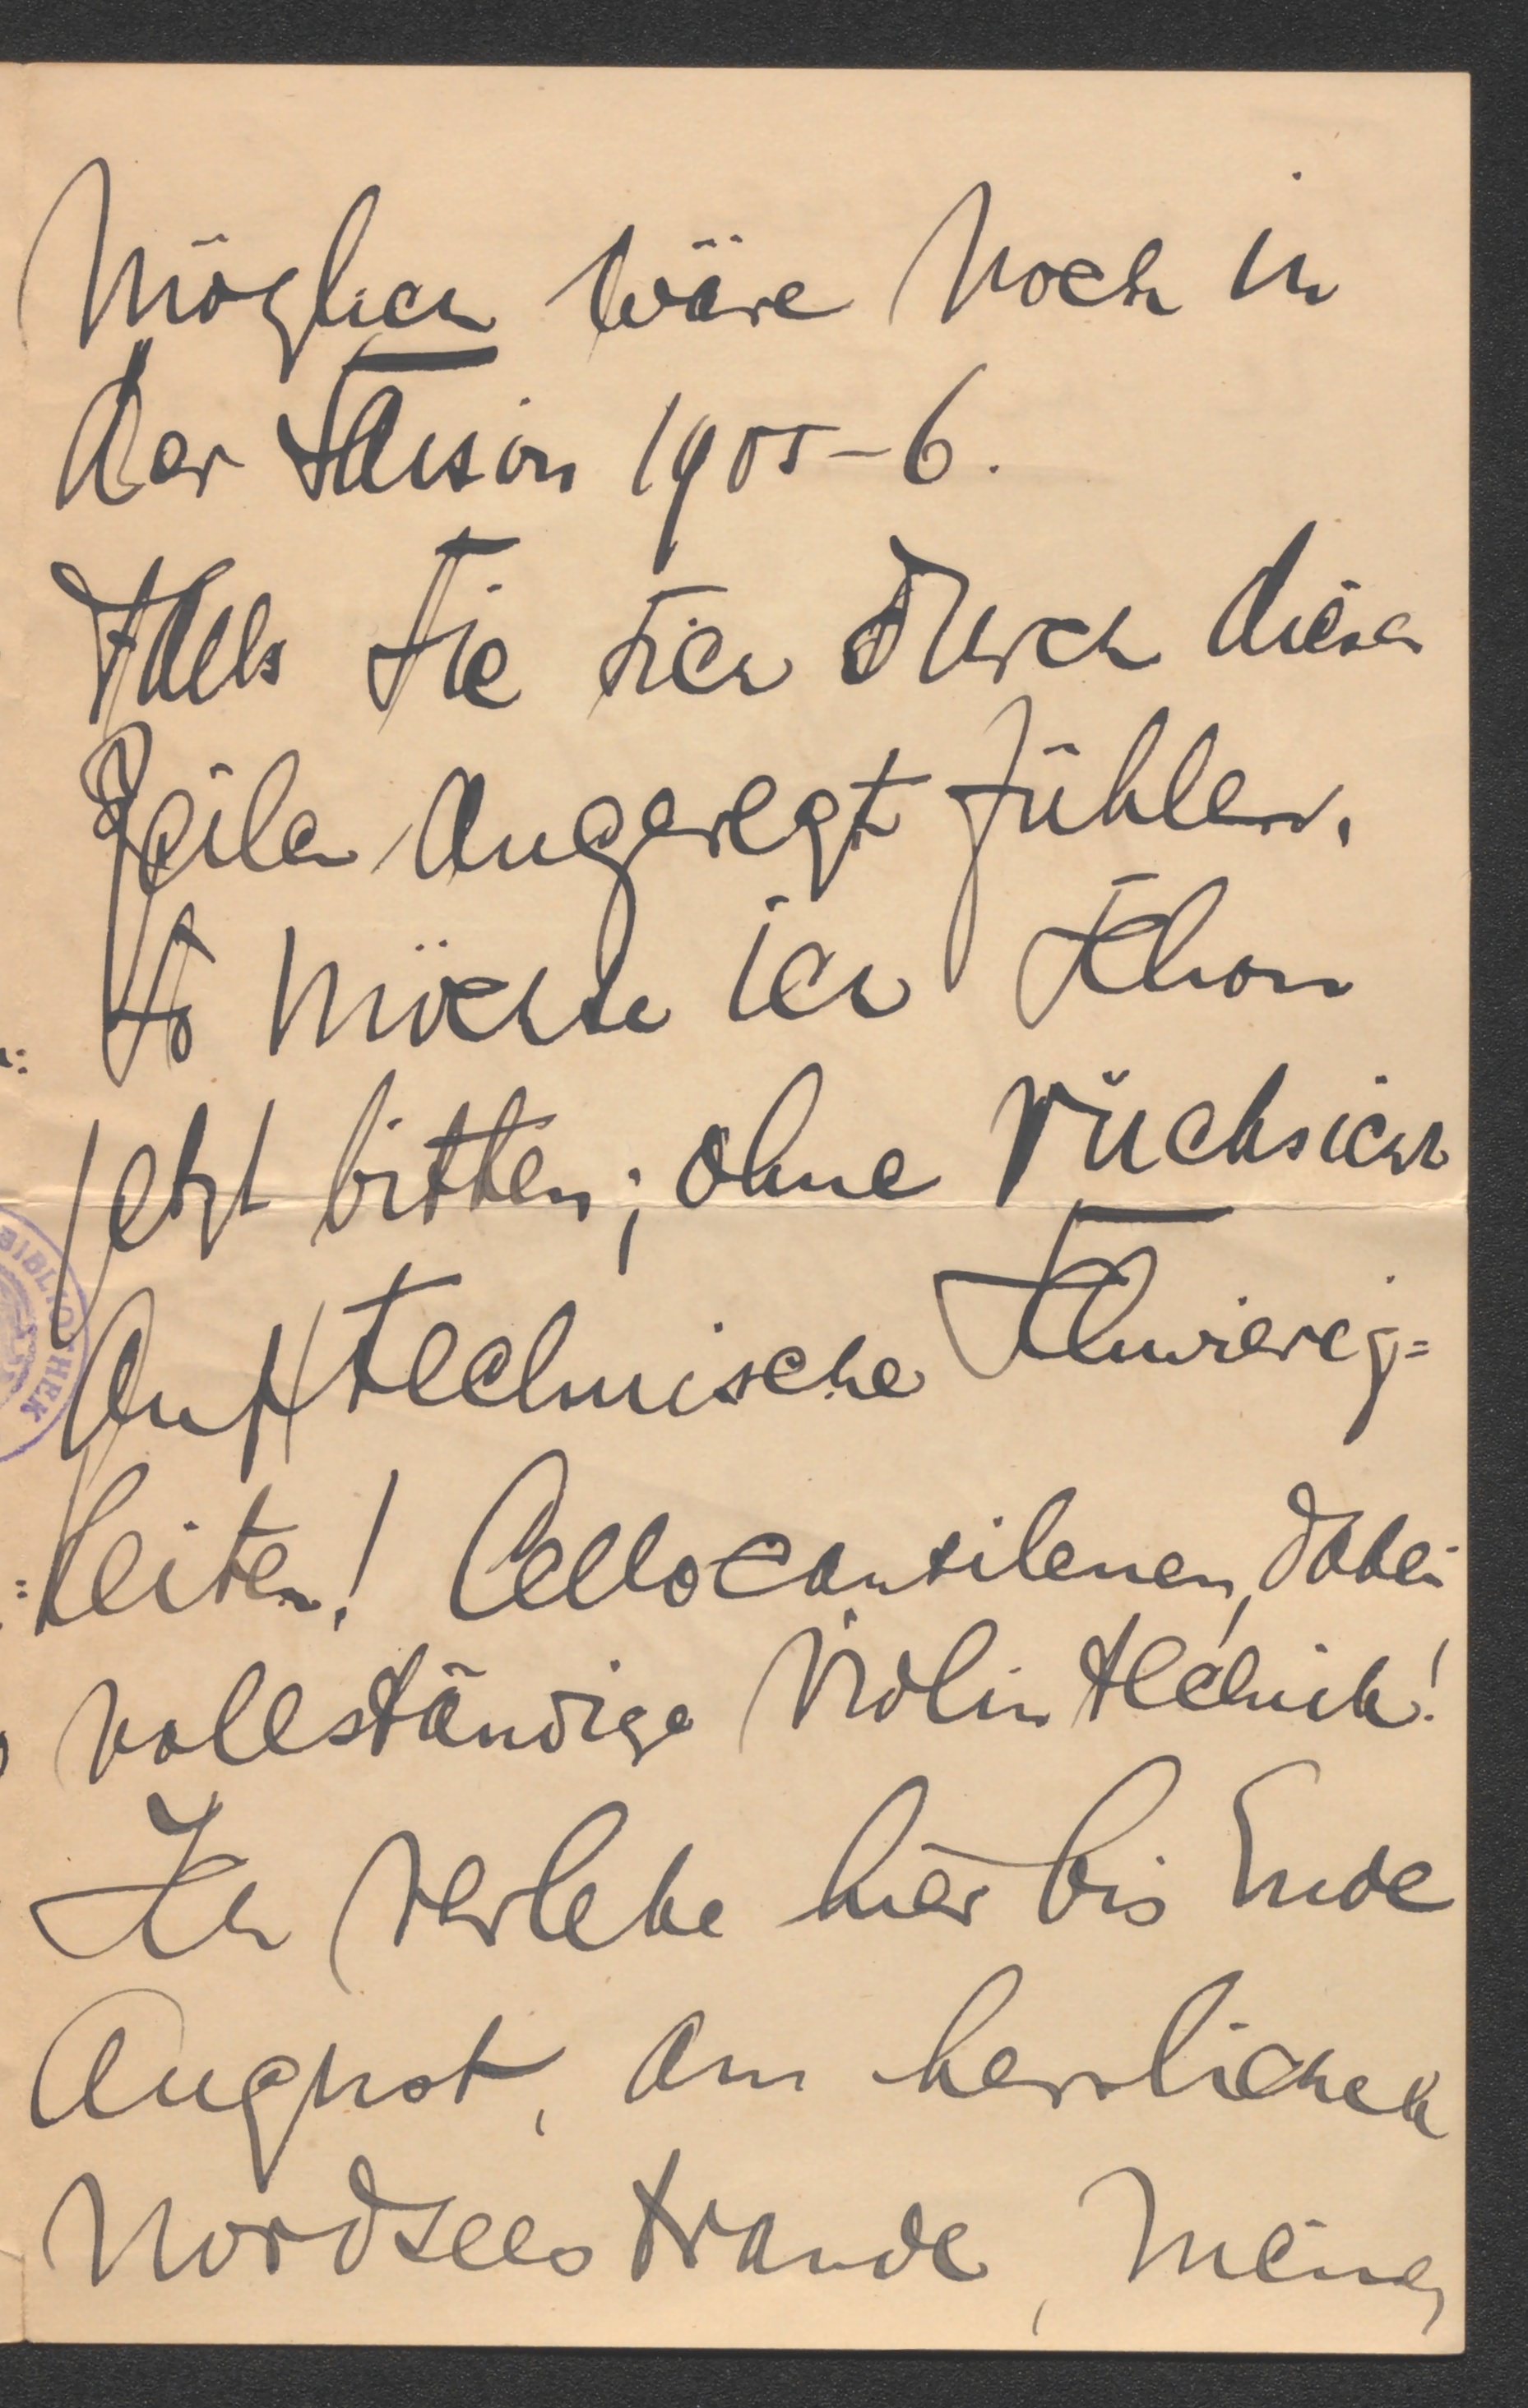 möglich wäre noch in
der Saison 1905-6.
Falls Sie sich durch diese
Zeile angeregt fühlen,
so möchte ich schon
jetzt bitten; ohne rücksicht
auf technische Schwierig=
keiten! Cellocantilenen, dabei
vollständige Violintechnik!
Ich verlebe hier bis Ende
August, am herrlichen
Nordseestrande, meine
BIBLIOTHEK